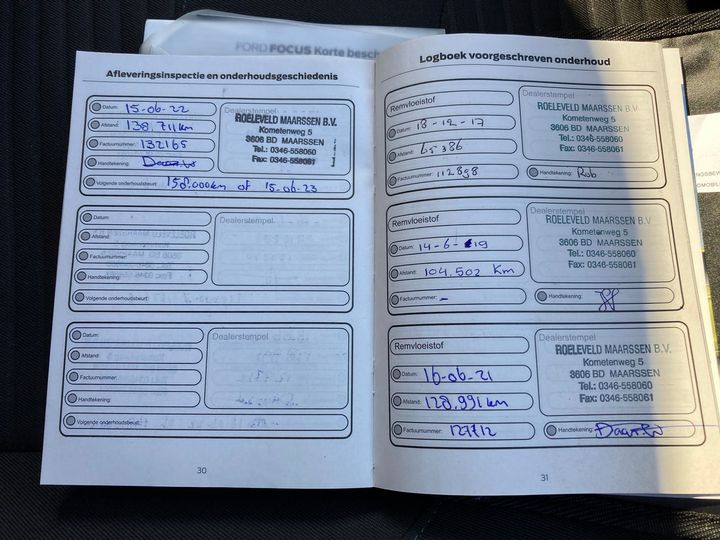 FORD FOCUS Korte besch
Afleveringsinspectie en onderhoudsgeschiedenis
Datum: 15-06-22
Afstand: 138.711km
Factuurnummer: 132165
Handtekening:
Volgende onderhoudsbeurt: 158.000km of 15-06-23
Dealerstempel
ROELEVELD MAARSSEN B.V.
Kometenweg 5
3606 BD MAARSSEN
Tel.: 0346-558060
Fax: 0346-558061
Datum:
Afstand:
Factuurnummer:
Handtekening:
Volgende onderhoudsbeurt:
Dealerstempel
Datum:
Afstand:
Factuurnummer:
Handtekening:
Volgende onderhoudsbeurt:
Dealerstempel
30
Logboek voorgeschreven onderhoud
Remvloeistof
Datum: 18-12-17
Afstand: 65386
Factuurnummer: 112898
Dealerstempel
ROELEVELD MAARSSEN B.V.
Kometenweg 5
3606 BD MAARSSEN
Tel.: 0346-558060
Fax: 0346-558061
Handtekening: Rob
Remvloeistof
Datum: 14-6-19
Afstand: 104.502 Km
Factuurnummer: -
Dealerstempel
ROELEVELD MAARSSEN B.V.
Kometenweg 5
3606 BD MAARSSEN
Tel.: 0346-558060
Fax: 0346-558061
Handtekening:
Remvloeistof
Datum: 16-06-21
Afstand: 128.991km
Factuurnummer:
Dealerstempel
ROELEVELD MAARSSEN B.V.
Kometenweg 5
3606 BD MAARSSEN
Tel.: 0346-558060
Fax: 0346-558061
Handtekening:
31